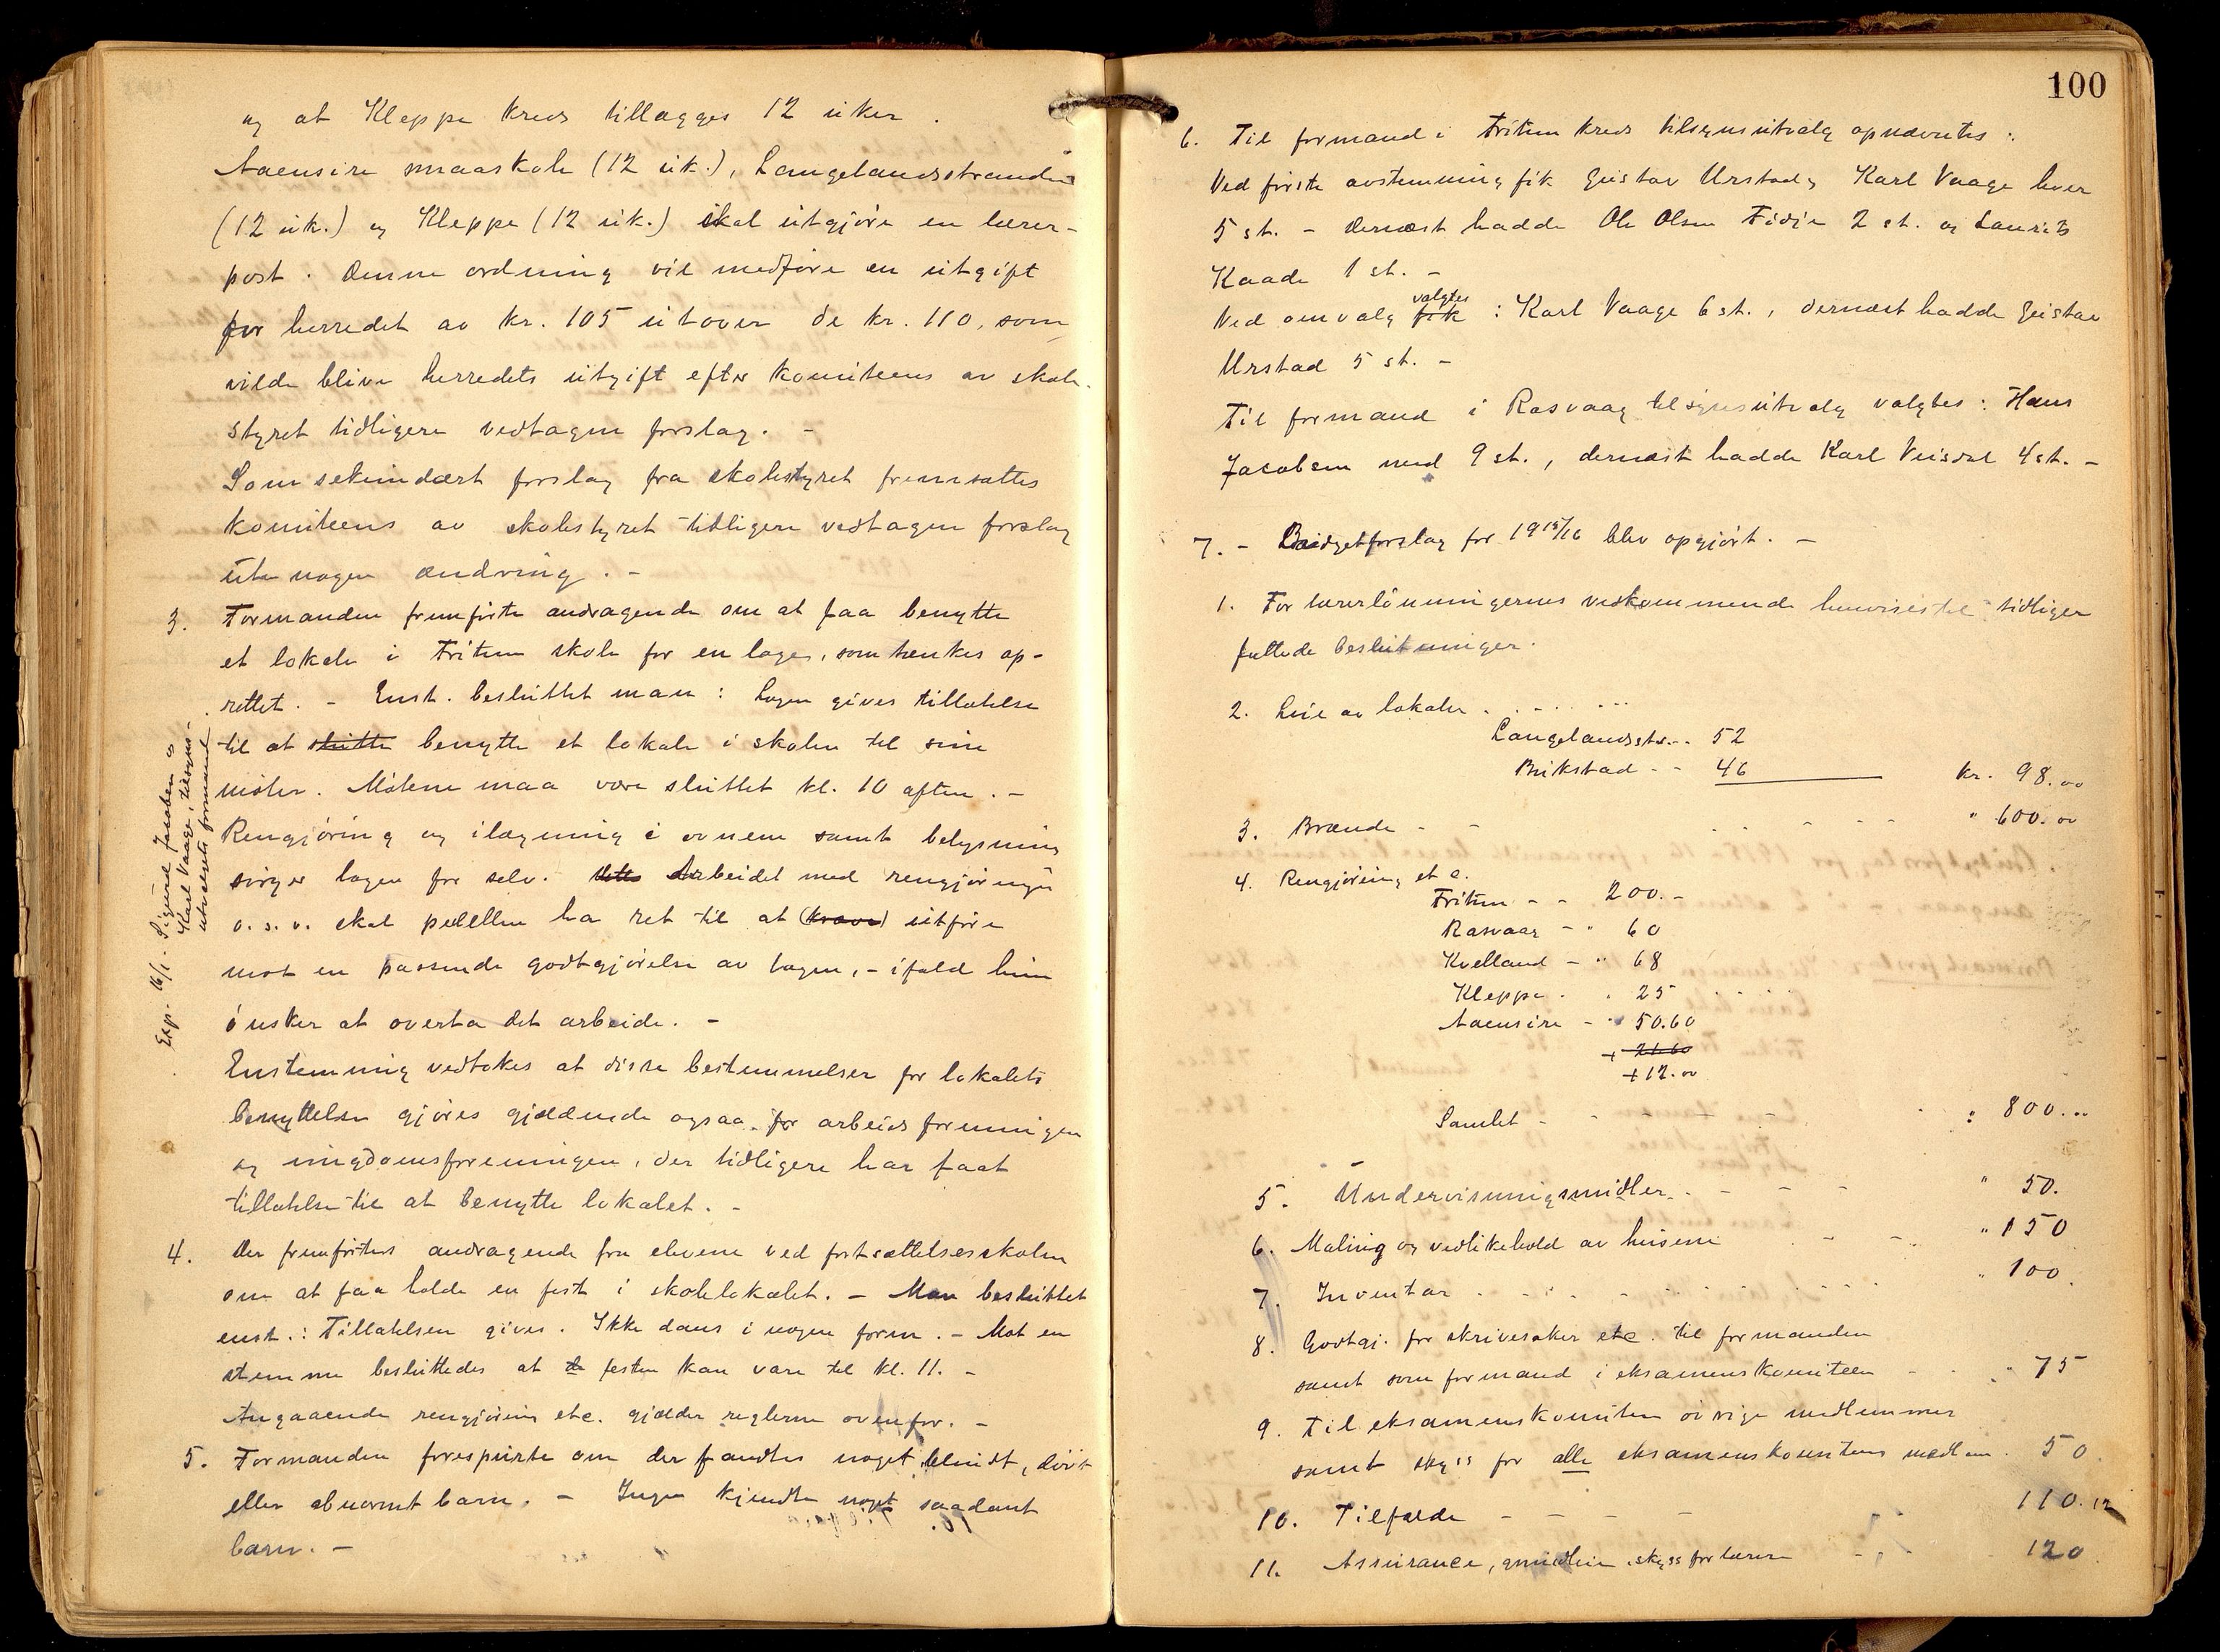 og at Kleppe kreds tillægges 12 uker.
Aaensire smaaskole (12 uk.), Langelandsstranden
(12 uk.) og Kleppe (12 uk.) skal utgjøre en lærer-
post. Denne ordning vil medføre en utgift
for herredet av kr. 105 utover de kr. 110, som
vilde blive herredets utgift efter komiteens av skole-
styret tidligere vedtagne forslag. -
Som sekundært forslag fra skolestyret fremsattes
komiteens av skolestyret tidligere vedtagne forslag
uten nogen ændring. -
3. Formanden fremførte andragende om at faa benytte
et lokale i Fritun skole for en loge, som tænkes op-
rettet. - Enst. besluttet man: Logen gives tillatelse
til at slutte benytte et lokale i skolen til sine
møter. Møtene maa være sluttet kl. 10 aften. -
Rengjøring og ilægning i ovnene samt belysning
sørger logen for selv. Dette Arbeidet med rengjøringen
o. s. v. skal pedellen ha ret til at (kræve) utføre
mot en passende godtgjørelse av logen, - ifald hun
ønsker at overta det arbeide. -
Enstemmig vedtokes at disse bestemmelser for lokalets
benyttelse gjøres gjældende ogsaa for arbeidsforeningen
og ungdomsforeningen, der tidligere har faat
tillatelse til at benytte lokalet. -
Exp. 16/1. Sigurd Jacobsen og
Karl Vaage, tilsyns-
utvalgets formænd
4. Der fremførtes andragende fra elevene ved fortsættelsesskolen
om at faa holde en fest i skolelokalet. - Man besluttet
enst.: Tillatelsen gives. Ikke dans i nogen form. - Mot en
stemme besluttedes at de festen kan vare til kl. 11. -
Angaaende rengjøring etc. gjælder reglerne ovenfor. -
5. Formanden forespurte om der fandtes noget blindt, døvt
eller abnormt barn. - Ingen kjendte noget saadant
barn. -
100
6. Til formand i Fritun kreds tilsynsutvalg opnævntes:
Ved første avstemning fik Gustav Urstad og Karl Vaage hver
5 st. - dernæst hadde Ole Olsen Fidje 2 st. og Laurits
Kaade 1 st. -
Ved omvalg fik valgtes: Karl Vaage 6 st., dernæst hadde Gustav
Urstad 5 st. -
Til formand i Rasvaag tilsynsutvalg valgtes: Hans
Jacobsen med 9 st., dernæst hadde Karl Veisdal 4 st. -
7. - Budgetforslag for 1915/16 blev opgjørt. -
1. For lærerlønningernes vedkommende henvises til tidligere
fattede beslutninger.
2. Leie av lokaler . . . . . .
Langelandsstr... 52
Birkstad - - 46 kr. 98.00
3. Brænde - - - - - " 600.00
4. Rengjøring etc.
Fritun - - 200.-
Rasvaag - " 60
Kvelland - " 68
Kleppe . " 25
Aaensire - " 50.60
+ 21.60
+ 12.00
Samlet - - - - : 800...
5. Undervisningsmidler - - - - " 50.
6. Maling og vedlikehold av husene - - " 150
7. Inventar - - - - - " 100.
8. Godtgj. for skrivesaker etc. til formanden
samt som formand i eksamenskomiteen - - " 75
9. Til eksamenskomiteen øvrige medlemmer
samt skyss for alle eksamenskomiteens medlem. 50.
10. Tilfælde - - - - 110.12
11. Assurance, skyss for lærere - - 120